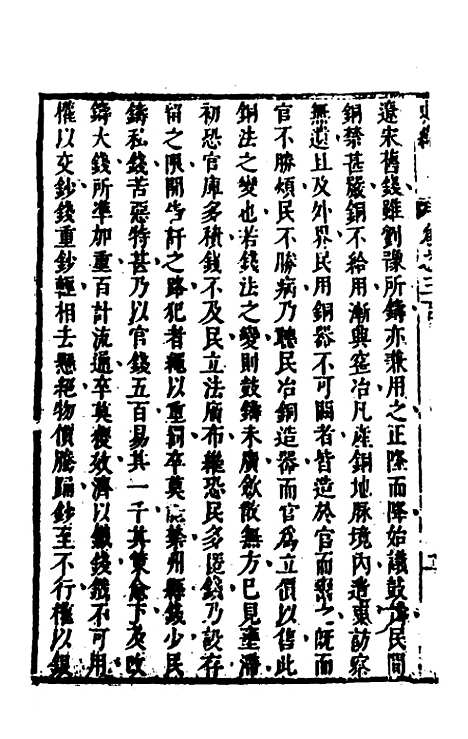 遼宋舊錢雖劉豫所鑄亦兼用之正隆而降始議鼓鑄民間
銅禁甚嚴銅不給用漸興窑冶凡產銅地脉境內遣吏訪察
無遺且及外界民用銅器不可闕者皆造於官而鬻之既而
官不勝煩民不勝病乃聽民冶銅造器而官爲立價以售此
銅法之變也若錢法之變則鼓鑄未廣斂散無方已見壅滯
初恐官庫多積錢不及民立法廣布繼恐民多匿錢乃設存
留之限開告訐之路犯者繩以重罰卒莫能禁州縣錢少民
鑄私錢苦惡特甚乃以官錢五百易其一千其策愈下及改
鑄大錢所準加重百計流通卒莫獲效濟以鐵錢鐵不可用
權以交鈔錢重鈔輕相去懸絕物價騰踊鈔至不行權以銀